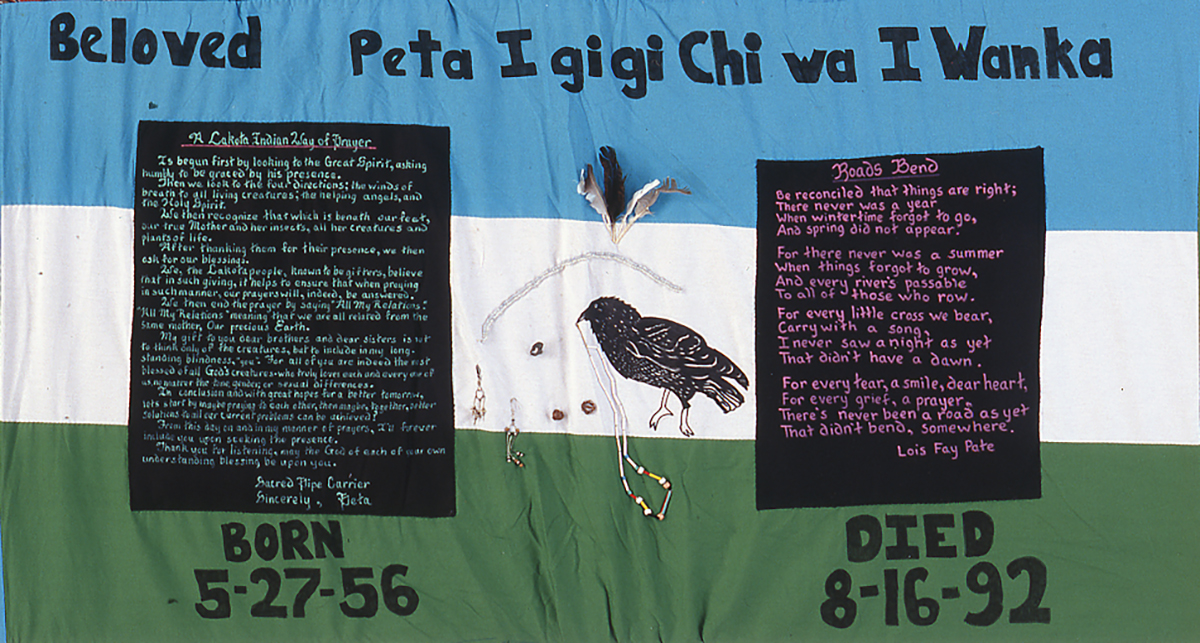 Beloved Peta I gigi Chi wa I Wanka
A Lakota Indian Way of Prayer
Is begun first by looking to the Great Spirit, asking
humbly to be graced by his presence.
Then we look to the four directions; the winds of
breath to all living creatures; the helping angels, and
the Holy Spirit.
We then recognize that which is beneath our feet,
our true Mother and her insects, all her creatures and
plants of life.
After thanking them for their presence, we then
ask for our blessings.
We, the Lakota people, known to be gifters, believe
that in such giving, it helps to ensure that when praying
in such manner, our prayers will, indeed, be answered.
We then end the prayer by saying "All My Relations."
"All My Relations" meaning that we are all related from the
same mother, Our precious Earth.
My gift to you dear brothers and dear sisters is not
to think only of the creatures, but to include in my long-
standing blindness, "you". For all of you are indeed the most
blessed of all God's creatures - who truly loves each and every one of
us, no matter the time, gender, or sexual differences.
In conclusion and with great hopes for a better tomorrow,
lets start by maybe praying to each other, then maybe, together, better
solutions to all our current problems can be achieved!
From this day on and in my manner of prayers, I'll forever
include you upon seeking the presence.
Thank you for listening, may the God of each of our own
understanding blessing be upon you.
Sacred Pipe Carrier
Sincerely, Peta
Roads Bend
Be reconciled that things are right;
There never was a year
When wintertime forgot to go,
And spring did not appear.
For there never was a summer
When things forgot to grow,
And every river's passable
To all of those who row.
For every little cross we bear,
Carry with a song,
I never saw a night as yet
That didn't have a dawn.
For every tear, a smile, dear heart,
For every grief, a prayer,
There's never been a road as yet
That didn't bend, somewhere.
Lois Fay Pate
BORN
5-27-56
DIED
8-16-92